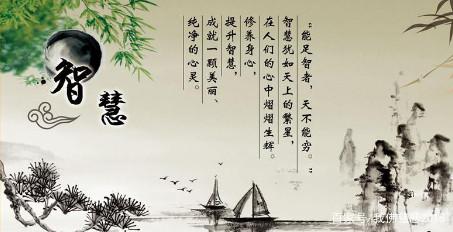 智慧
“能足智者，天不能穷。”
智慧犹如天上的繁星，
在人们的心中熠熠生辉。
修养身心，
提升智慧，
成就一颗美丽、
纯净的心灵。
百家号/我佛